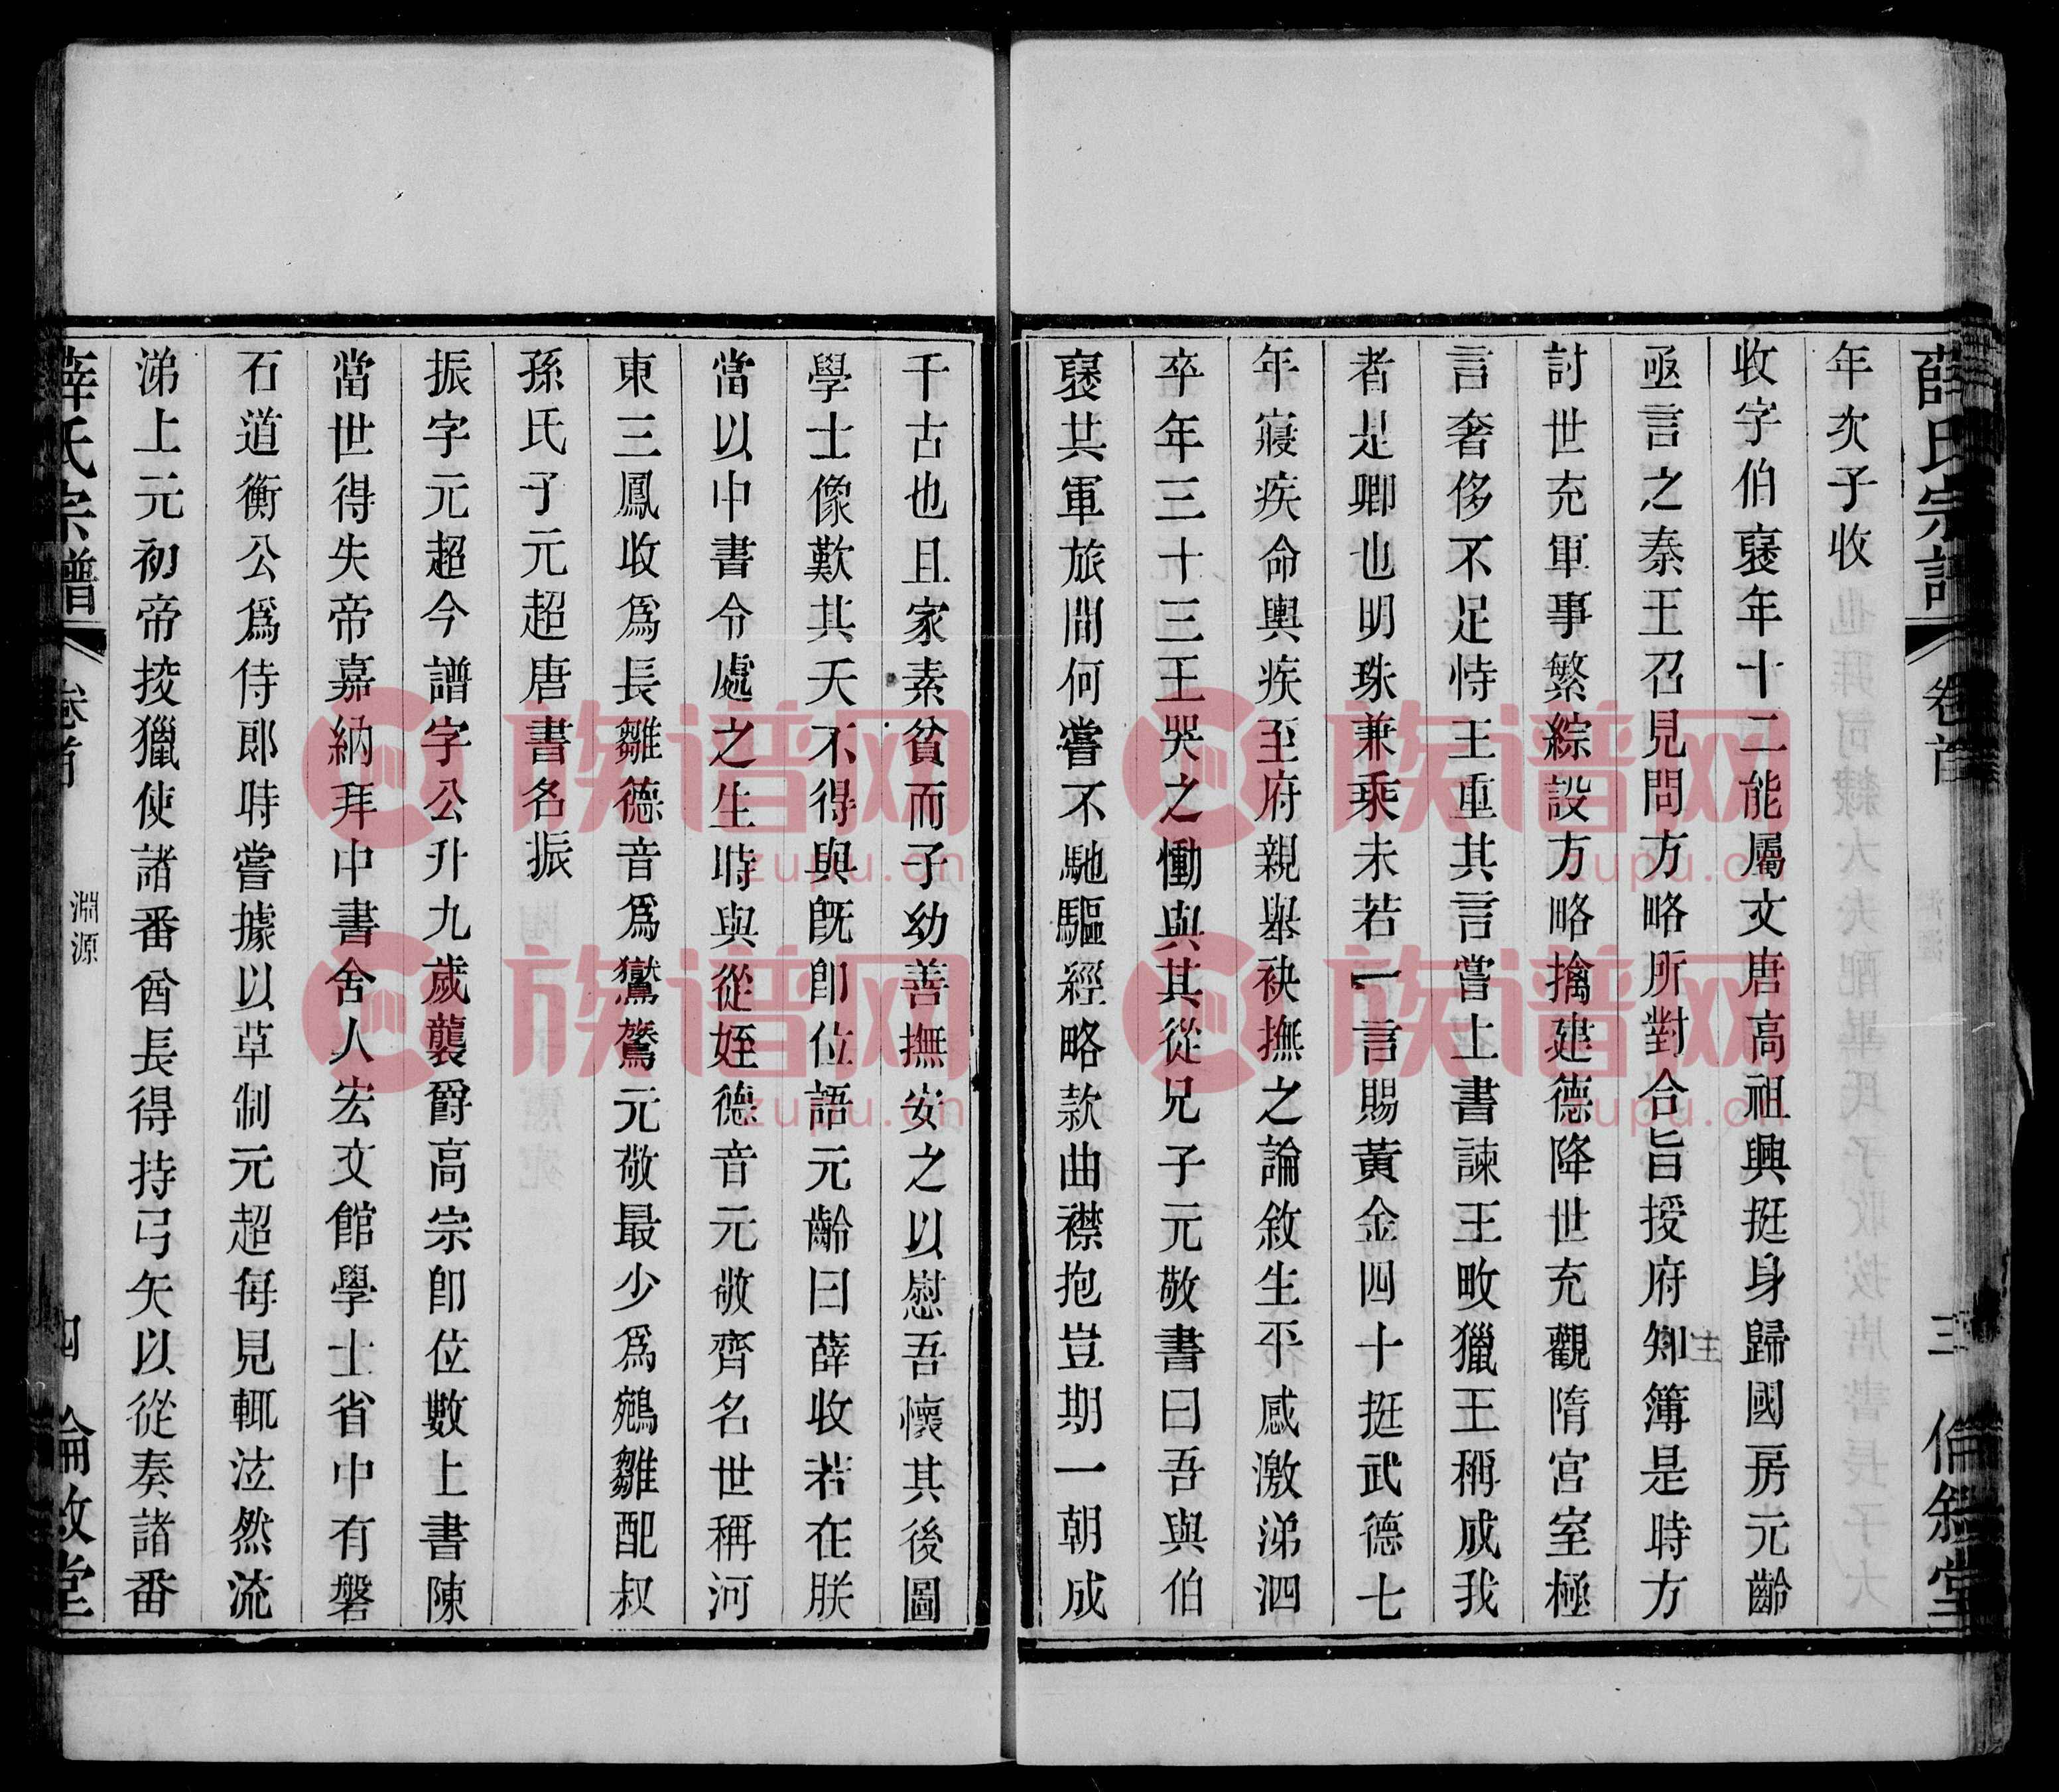 薛氏宗譜 卷首 三 倫敘堂
年次子收
收字伯襃年十二能屬文唐高祖興挺身歸國房元齡
亟言之秦王召見問方略所對合旨授府主簿是時方
討世充軍事繁綜設方略擒建德降世充觀隋宮室極
言奢侈不足恃王重其言嘗上書諫王畋獵王稱成我
者是卿也明珠兼乘未若一言賜黃金四十挺武德七
年寢疾命輿疾至府親舉袂撫之論敘生平感激涕泗
卒年三十三王哭之慟與其從兄子元敬書曰吾與伯
襃共軍旅間何嘗不馳驅經略款曲襟抱豈期一朝成
千古也且家素貧而子幼善撫安之以慰吾懷其後圖
學士像歎其夭不得與旣卽位語元齡曰薛收若在朕
當以中書令處之生時與從姪德音元敬齊名世稱河
東三鳳收爲長雛德音爲鸑鷟元敬最少爲鵷雛配叔
孫氏子元超唐書名振
振字元超今譜字公升九歲襲爵高宗卽位數上書陳
當世得失帝嘉納拜中書舍人宏文館學士省中有磐
石道衡公爲侍郎時嘗據以草制元超每見輒泫然流
涕上元初帝挍獵使諸番酋長得持弓矢以從奏諸番
薛氏宗譜 卷首 淵源 四 倫敘堂
族谱网
zupu.cn
族谱网
zupu.cn
族谱网
zupu.cn
族谱网
zupu.cn